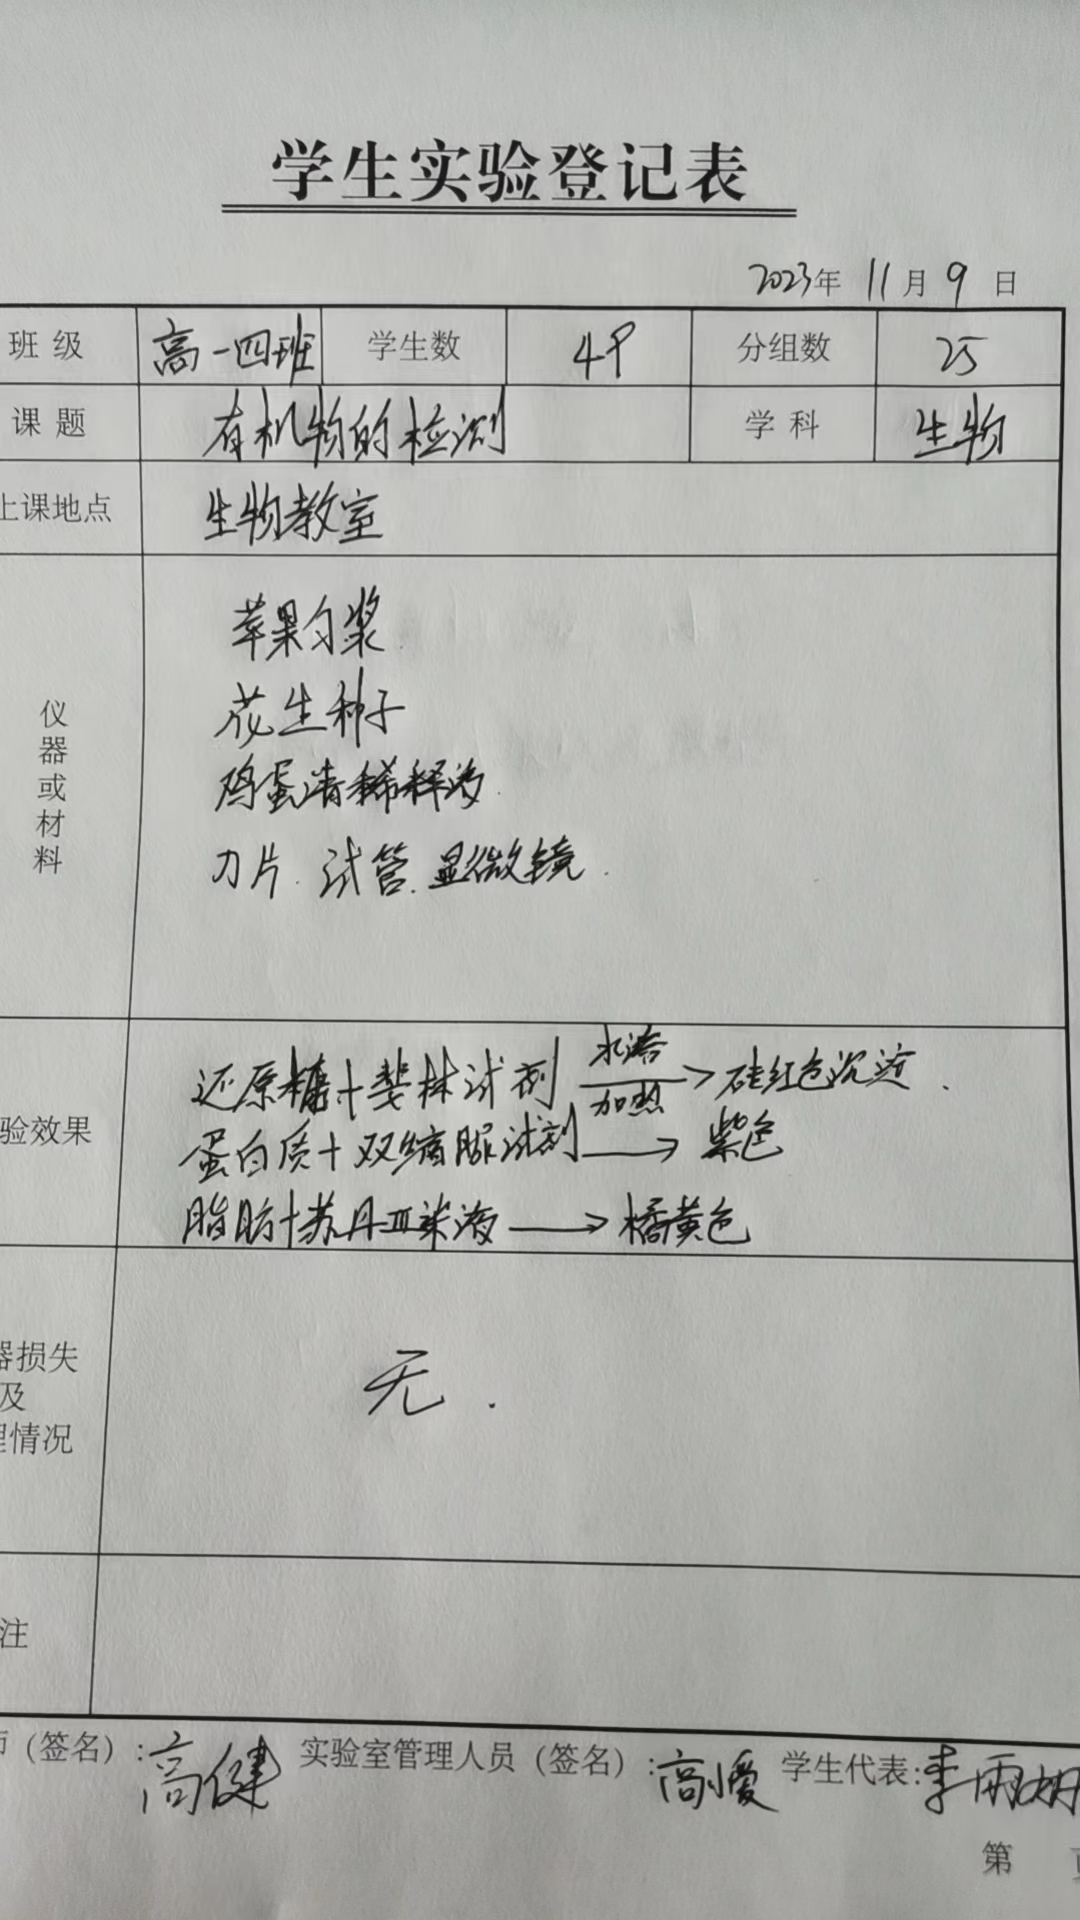 学生实验登记表
2023年 11月 9日
班级 高一四班 学生数 49 分组数 25
课题 有机物的检测 学科 生物
上课地点 生物教室
仪器或材料
苹果匀浆
花生种子
鸡蛋清稀释液
刀片.试管.显微镜.
验效果
水浴
还原糖+斐林试剂 → 砖红色沉淀.
加热
蛋白质+双缩脲试剂 → 紫色
脂肪+苏丹Ⅲ染液 → 橘黄色
器损失
及
理情况
无.
注
师(签名):高健 实验室管理人员(签名):高小爱 学生代表:李雨
第